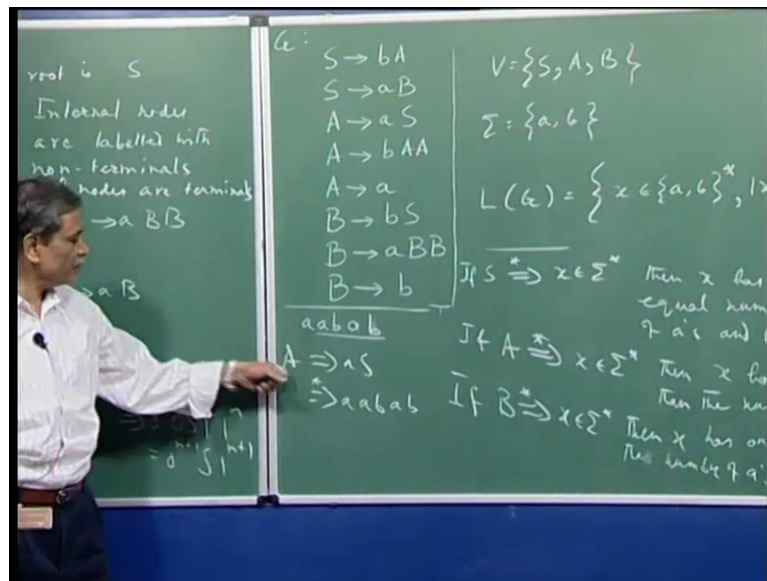 root is S
Internal nodes
are labelled with
non-terminals
nodes are terminals
→ a BB
→ a B
= 0ⁿ⁺¹ S 1ⁿ⁺¹
G :
S → bA
S → aB
A → aS
A → bAA
A → a
B → bS
B → aBB
B → b
aabab
A ⇒ aS
*⇒ aabab
V = {S, A, B}
Σ = {a, b}
L(G) = { x ∈ {a, b}*, |x
If S *⇒ x ∈ Σ* then x has
equal num
of a's and
If A *⇒ x ∈ Σ* Then x ha
than the nu
If B *⇒ x ∈ Σ* Then x has on
the number of a's